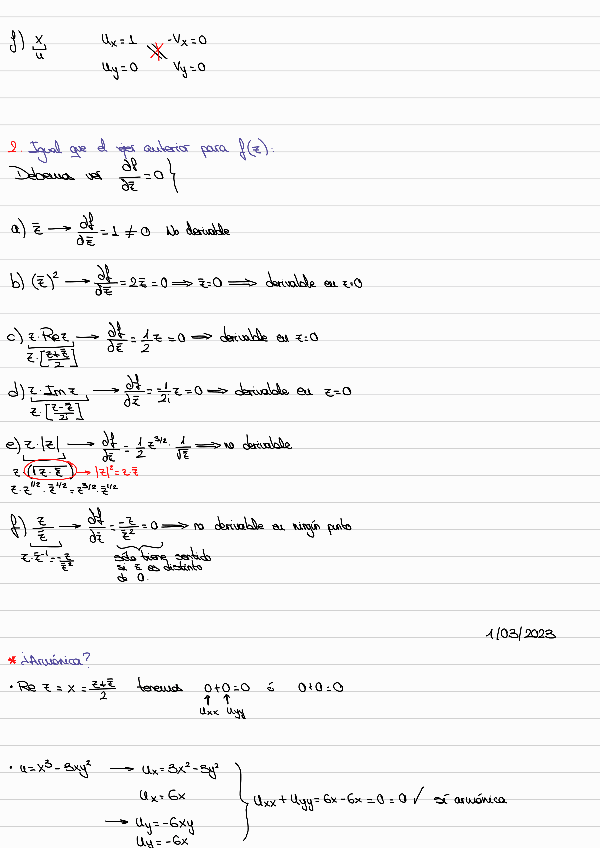 f) x   u_x = 1   -v_x = 0
u   u_y = 0   v_y = 0
2. Igual que el ejer anterior para f(z).
Debemos ver ∂f/∂z̄ = 0 }
a) z̄ → ∂f/∂z̄ = 1 ≠ 0 No derivable
b) (z̄)² → ∂f/∂z̄ = 2z̄ = 0 ⟹ z=0 ⟹ derivable en z=0
c) z·Re z → ∂f/∂z̄ = 1/2 z = 0 ⟹ derivable en z=0
z·[(z+z̄)/2]
d) z·Im z → ∂f/∂z̄ = -1/2i z = 0 ⟹ derivable en z=0
z·[(z-z̄)/2i]
e) z·|z| → ∂f/∂z̄ = 1/2 z^{3/2} · 1/√z̄ ⟹ no derivable
z·√(z·z̄) → |z|² = z z̄
z·z^{1/2}·z̄^{1/2} = z^{3/2}·z̄^{1/2}
f) z/z̄ → ∂f/∂z̄ = -z/z̄² = 0 ⟹ no derivable en ningún punto
z·z̄^{-1} = -z/z̄²   sólo tiene sentido
si z̄ es distinto
de 0.
1/03/2023
* ¿Armónica?
· Re z = x = (z+z̄)/2 tenemos 0+0=0 ó 0+0=0
u_xx u_yy
· u = x³ - 3xy² → u_x = 3x² - 3y²
u_x = 6x
u_xx + u_yy = 6x - 6x = 0 = 0 ✓ sí armónica
→ u_y = -6xy
u_y = -6x